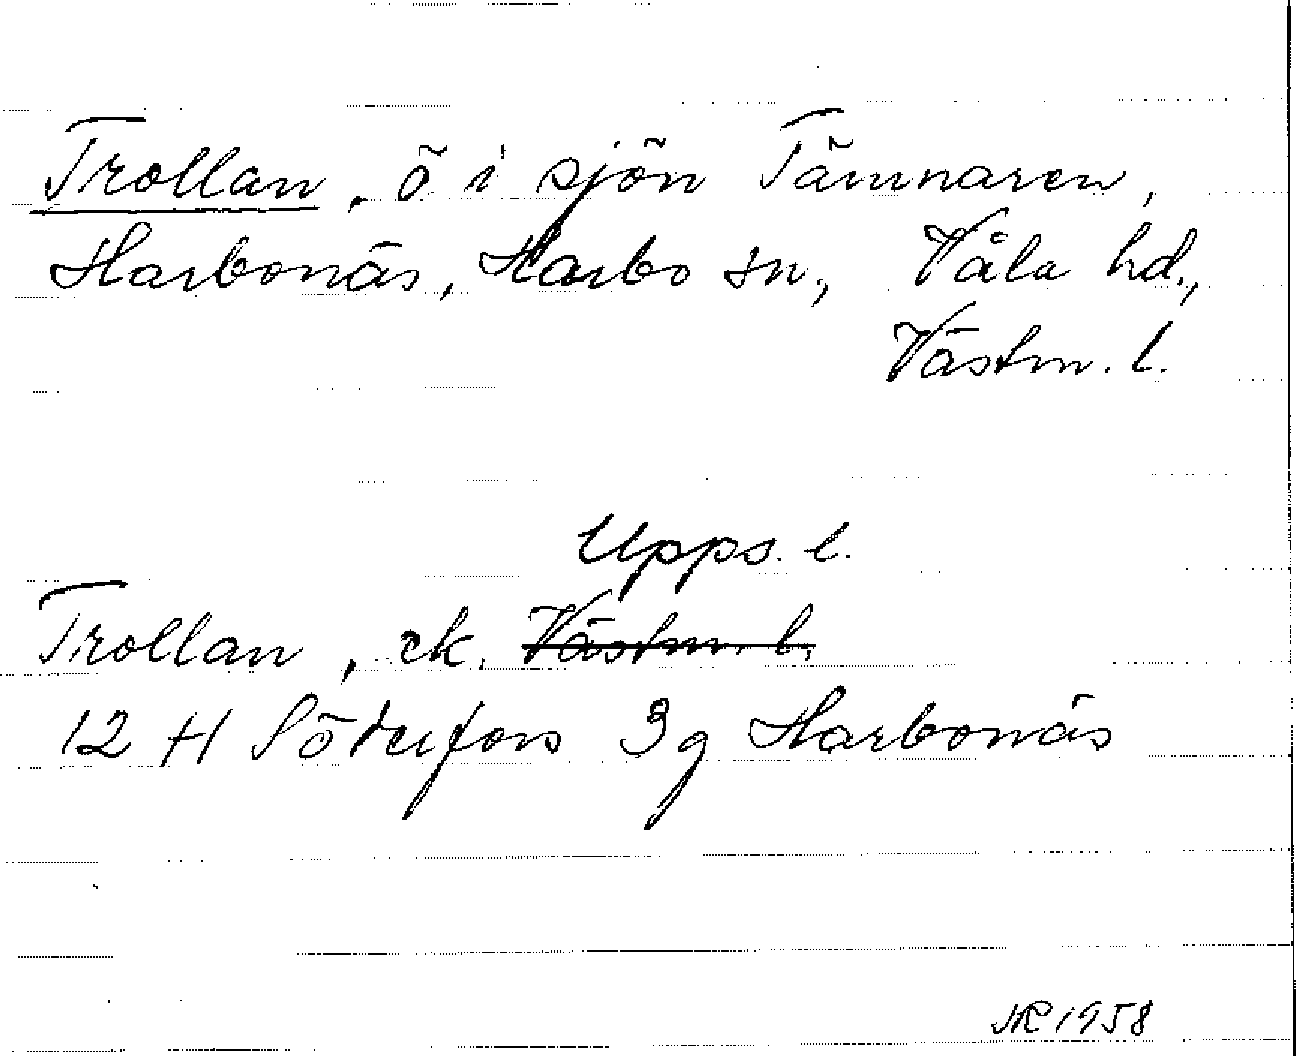 Trollan, ö i sjön Tämnaren,
Harbonäs, Harbo sn, Våla hd.,
Västm. l.
Upps. l.
Trollan, ek. Västm. l.
12 H Söderfors 3g Harbonäs
NR 1958